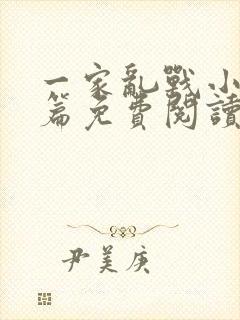 一家亂戰小
篇免費閱讀
尹美庚